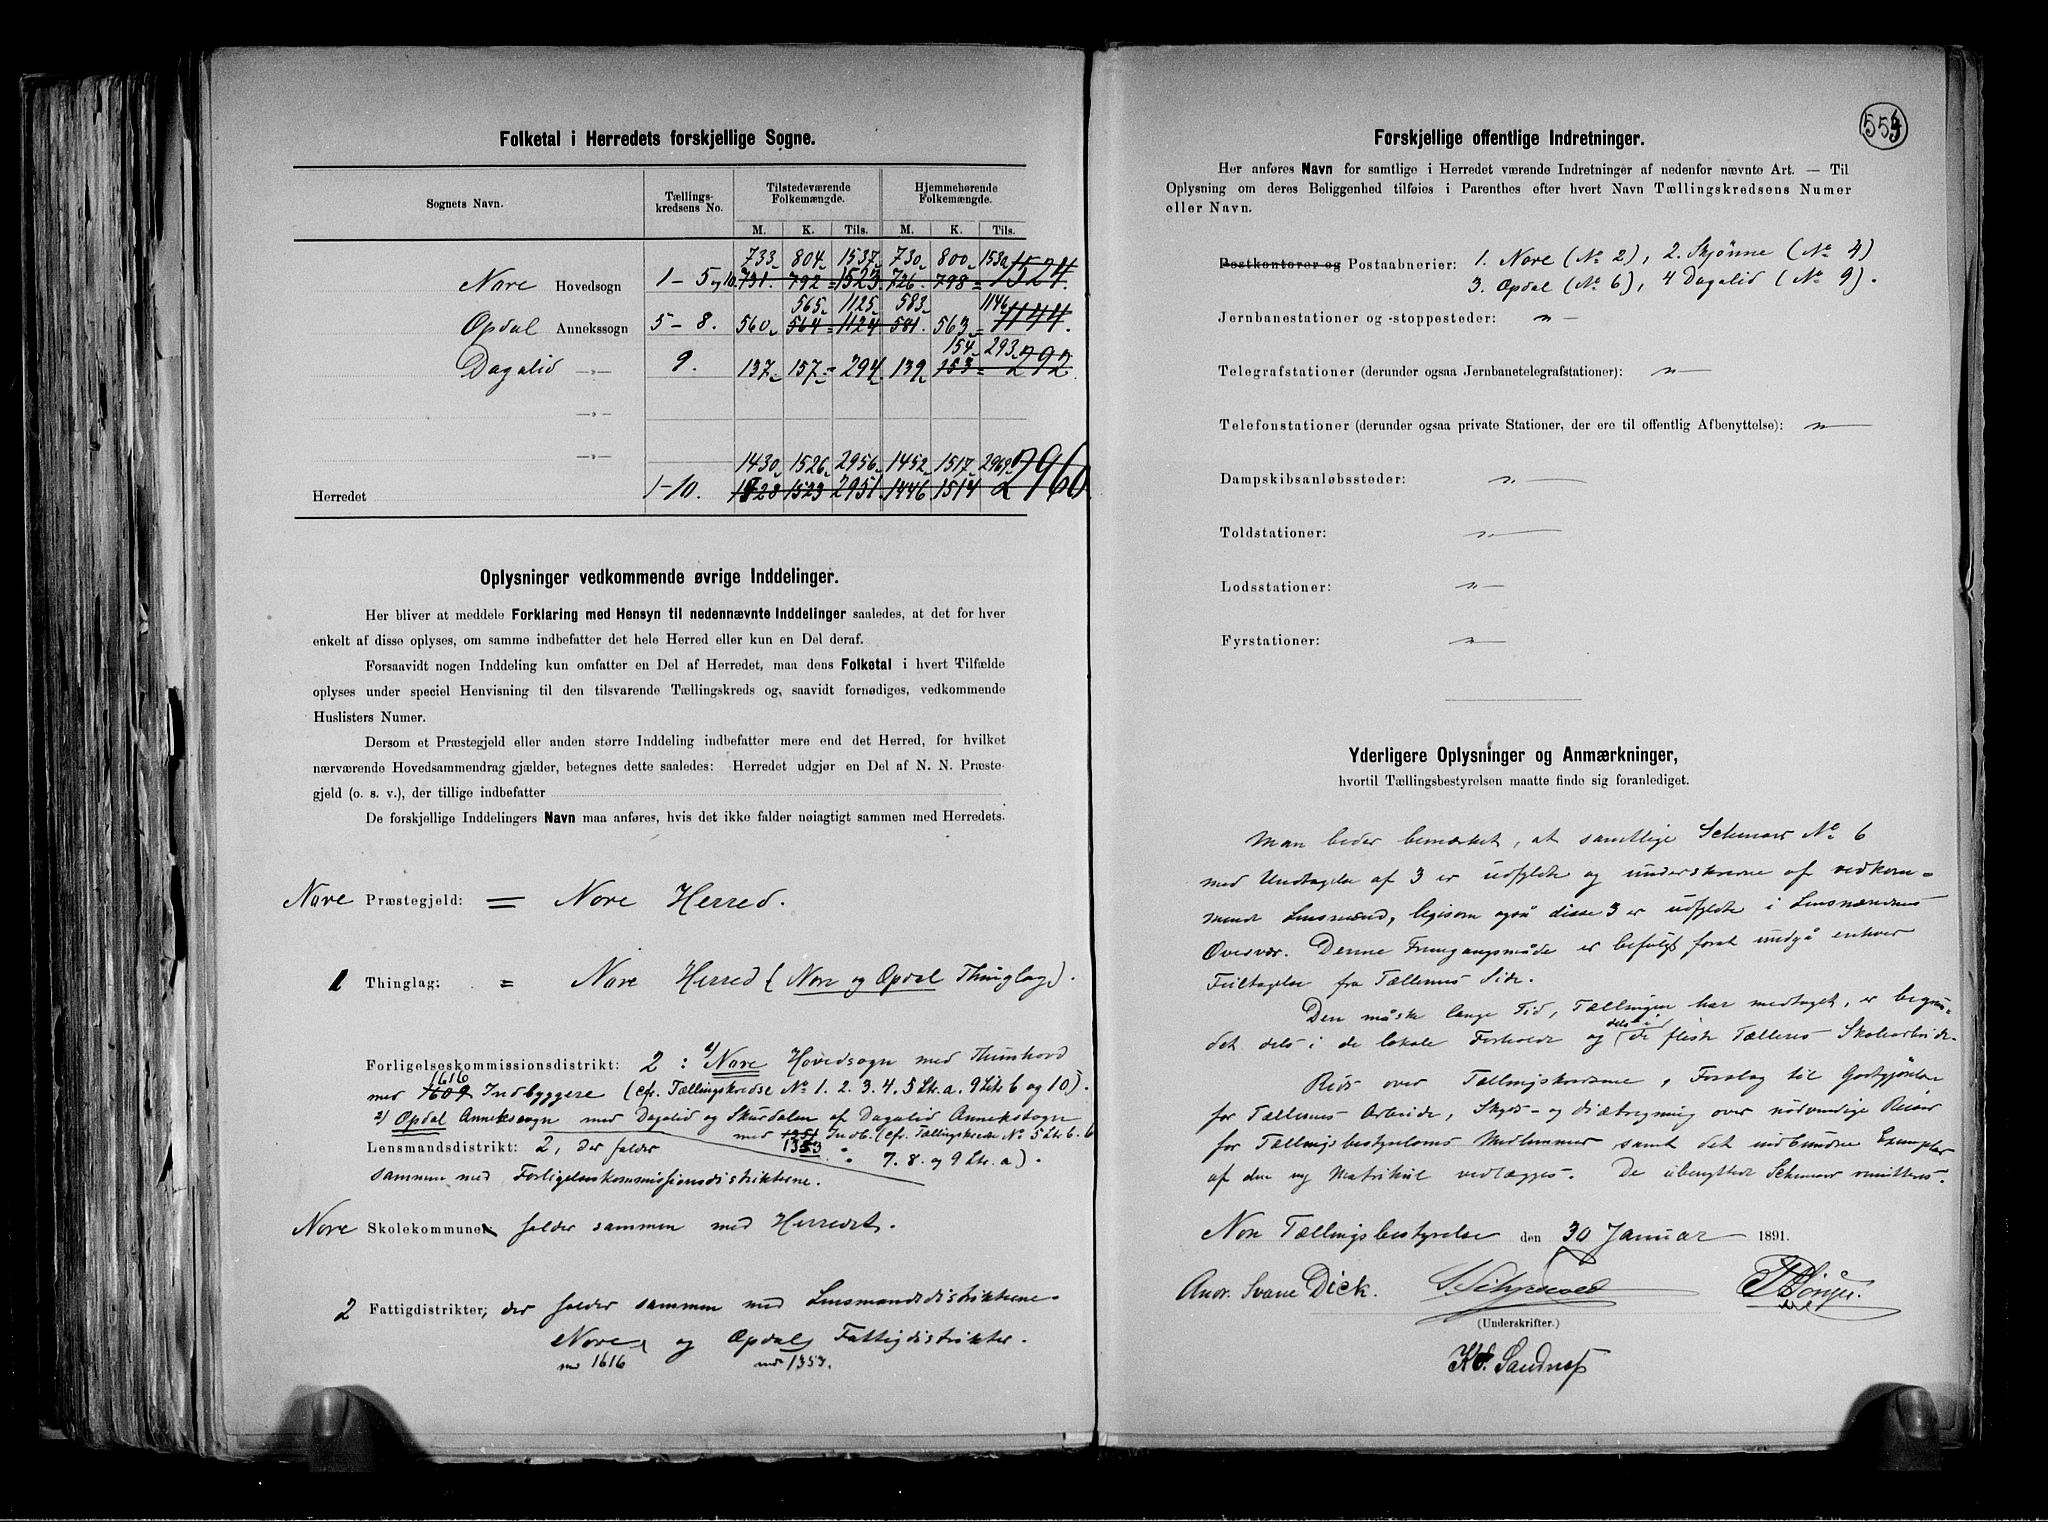 Folketal i Herredets forskjellige Sogne.
Sognets Navn. Tællings-kredsens No. Tilstedeværende Folkemængde. Hjemmehørende Folkemængde.
M. K. Tils. M. K. Tils.
733 804 1537 730 800 1530
Nore Hovedsogn 1-5 og 10. 731. 792 1523 726. 798 1524.
565 1125 583 1146
Opdal Annekssogn 5-8. 560 564 1124 581. 563 1144.
154. 293
Dagalid —„— 9. 137 157 294 139 153 292.
—„—
—„—
1430 1526 2956 1452 1517 2969
Herredet 1-10. 1428 1523 2951 1446 1514 2960
Oplysninger vedkommende øvrige Inddelinger.
Her bliver at meddele Forklaring med Hensyn til nedennævnte Inddelinger saaledes, at det for hver
enkelt af disse oplyses, om samme indbefatter det hele Herred eller kun en Del deraf.
Forsaavidt nogen Inddeling kun omfatter en Del af Herredet, maa dens Folketal i hvert Tilfælde
oplyses under speciel Henvisning til den tilsvarende Tællingskreds og, saavidt fornødiges, vedkommende
Huslisters Numer.
Dersom et Præstegjeld eller anden større Inddeling indbefatter mere end det Herred, for hvilket
nærværende Hovedsammendrag gjælder, betegnes dette saaledes: Herredet udgjør en Del af N. N. Præste-
gjeld (o. s. v.), der tillige indbefatter
De forskjellige Inddelingers Navn maa anføres, hvis det ikke falder nøiagtigt sammen med Herredets.
Nore Præstegjeld: = Nore Herred.
1 Thinglag: = Nore Herred (Nore og Opdal Thinglag).
Forligelseskommissionsdistrikt: 2: 1) Nore Hovedsogn med Thunhovd
1616
med 1609 Indbyggere (cfr. Tællingskredse No 1. 2. 3. 4. 5 Ltr. a. 9 Litr b og 10).
2) Opdal Annekssogn med Dagalid og Skurdalen af Dagalid Annekssogn
med 1351 Indb. (cfr. Tællingskredse No 5 Ltr b. 6
Lensmandsdistrikt: 2, der falder 1353 7. 8. og 9 Ltr. a).
sammen med Forligelseskommissionsdistrikterne.
Nore Skolekommune falder sammen med Herredet.
2 Fattigdistrikter, der falder sammen med Lensmandsdistrikterne
Nore og Opdals Fattigdistrikter.
med 1616 med 1353.
554
Forskjellige offentlige Indretninger.
Her anføres Navn for samtlige i Herredet værende Indretninger af nedenfor nævnte Art. — Til
Oplysning om deres Beliggenhed tilføies i Parenthes efter hvert Navn Tællingskredsens Numer
eller Navn.
Postkontorer og Postaabnerier: 1. Nore (No 2), 2. Skjønne (No 4)
3. Opdal (No 6), 4 Dagalid (No 9).
Jernbanestationer og -stoppesteder: „ —
Telegrafstationer (derunder ogsaa Jernbanetelegrafstationer): „ —
Telefonstationer (derunder ogsaa private Stationer, der ere til offentlig Afbenyttelse): „ —
Dampskibsanløbssteder: „ —
Toldstationer: „ —
Lodsstationer: „ —
Fyrstationer: „ —
Yderligere Oplysninger og Anmærkninger,
hvortil Tællingsbestyrelsen maatte finde sig foranlediget.
Man beder bemærket, at samtlige Schemaer No 6
med Undtagelse af 3 er udfyldte og underskrevne af vedkom=
mende Lensmænd, ligesom også disse 3 er udfyldte i Lensmændenes
Overvær. Denne Fremgangsmåde er befulgt forat undgå enhver
Feiltagelse fra Tællernes Side.
Den måske lange Tid, Tællingen har medtaget, er begrun-
dels i
det dels i de lokale Forholde og de fleste Tælleres Skolearbeide.
Rids over Tællingskredsene, Forslag til Godtgjørelse
for Tællernes Arbeide, Skyds- og Diætregning over nødvendige Reiser
for Tællingsbestyrelsens Medlemmer samt det indbundne Exemplar
af den ny Matrikul vedlægges. De ubenyttede Schemaer remitteres.
Nore Tællingsbestyrelse den 30 Januar 1891.
Andr. Svane Dick.
(Underskrifter.)